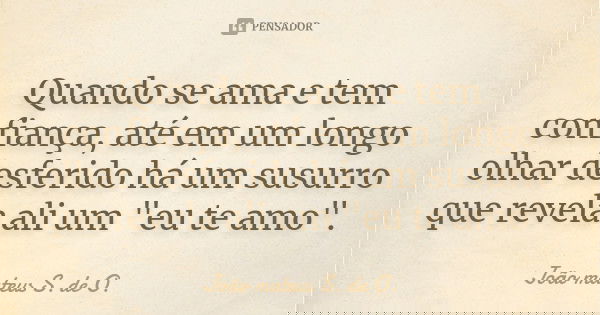 PENSADOR
Quando se ama e tem
confiança, até em um longo
olhar desferido há um susurro
que revela ali um "eu te amo".
João mateus S. de O.